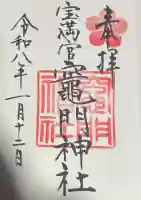 奉拝
宝満宮竈門神社
令和八年一月十二日